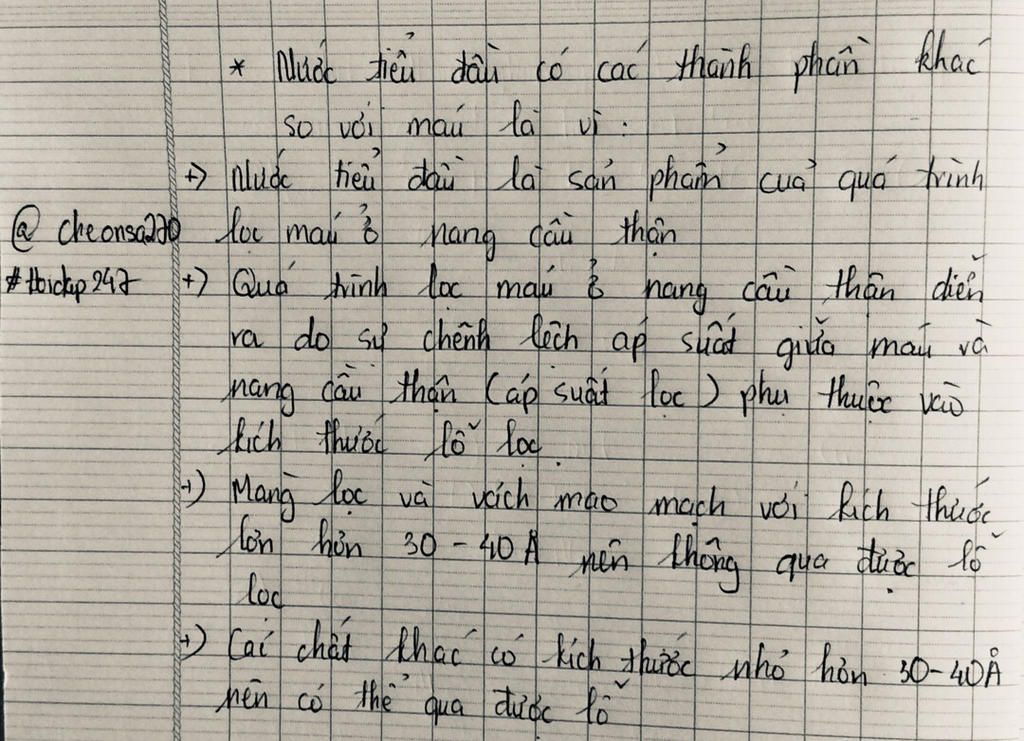 * Nước tiểu đầu có các thành phần khác
so với máu là vì:
+) Nước tiểu đầu là sản phẩm của quá trình
@ cheonsa220 lọc máu ở nang cầu thận
#tbidap247 +) Quá trình lọc máu ở nang cầu thận diễn
ra do sự chênh lệch áp suất giữa máu và
nang cầu thận (áp suất lọc) phụ thuộc vào
kích thước lỗ lọc.
+) Màng lọc và vách mao mạch với kích thước
lớn hơn 30-40 Å nên không qua được lỗ
lọc
+) Các chất khác có kích thước nhỏ hơn 30-40Å
nên có thể qua được lỗ